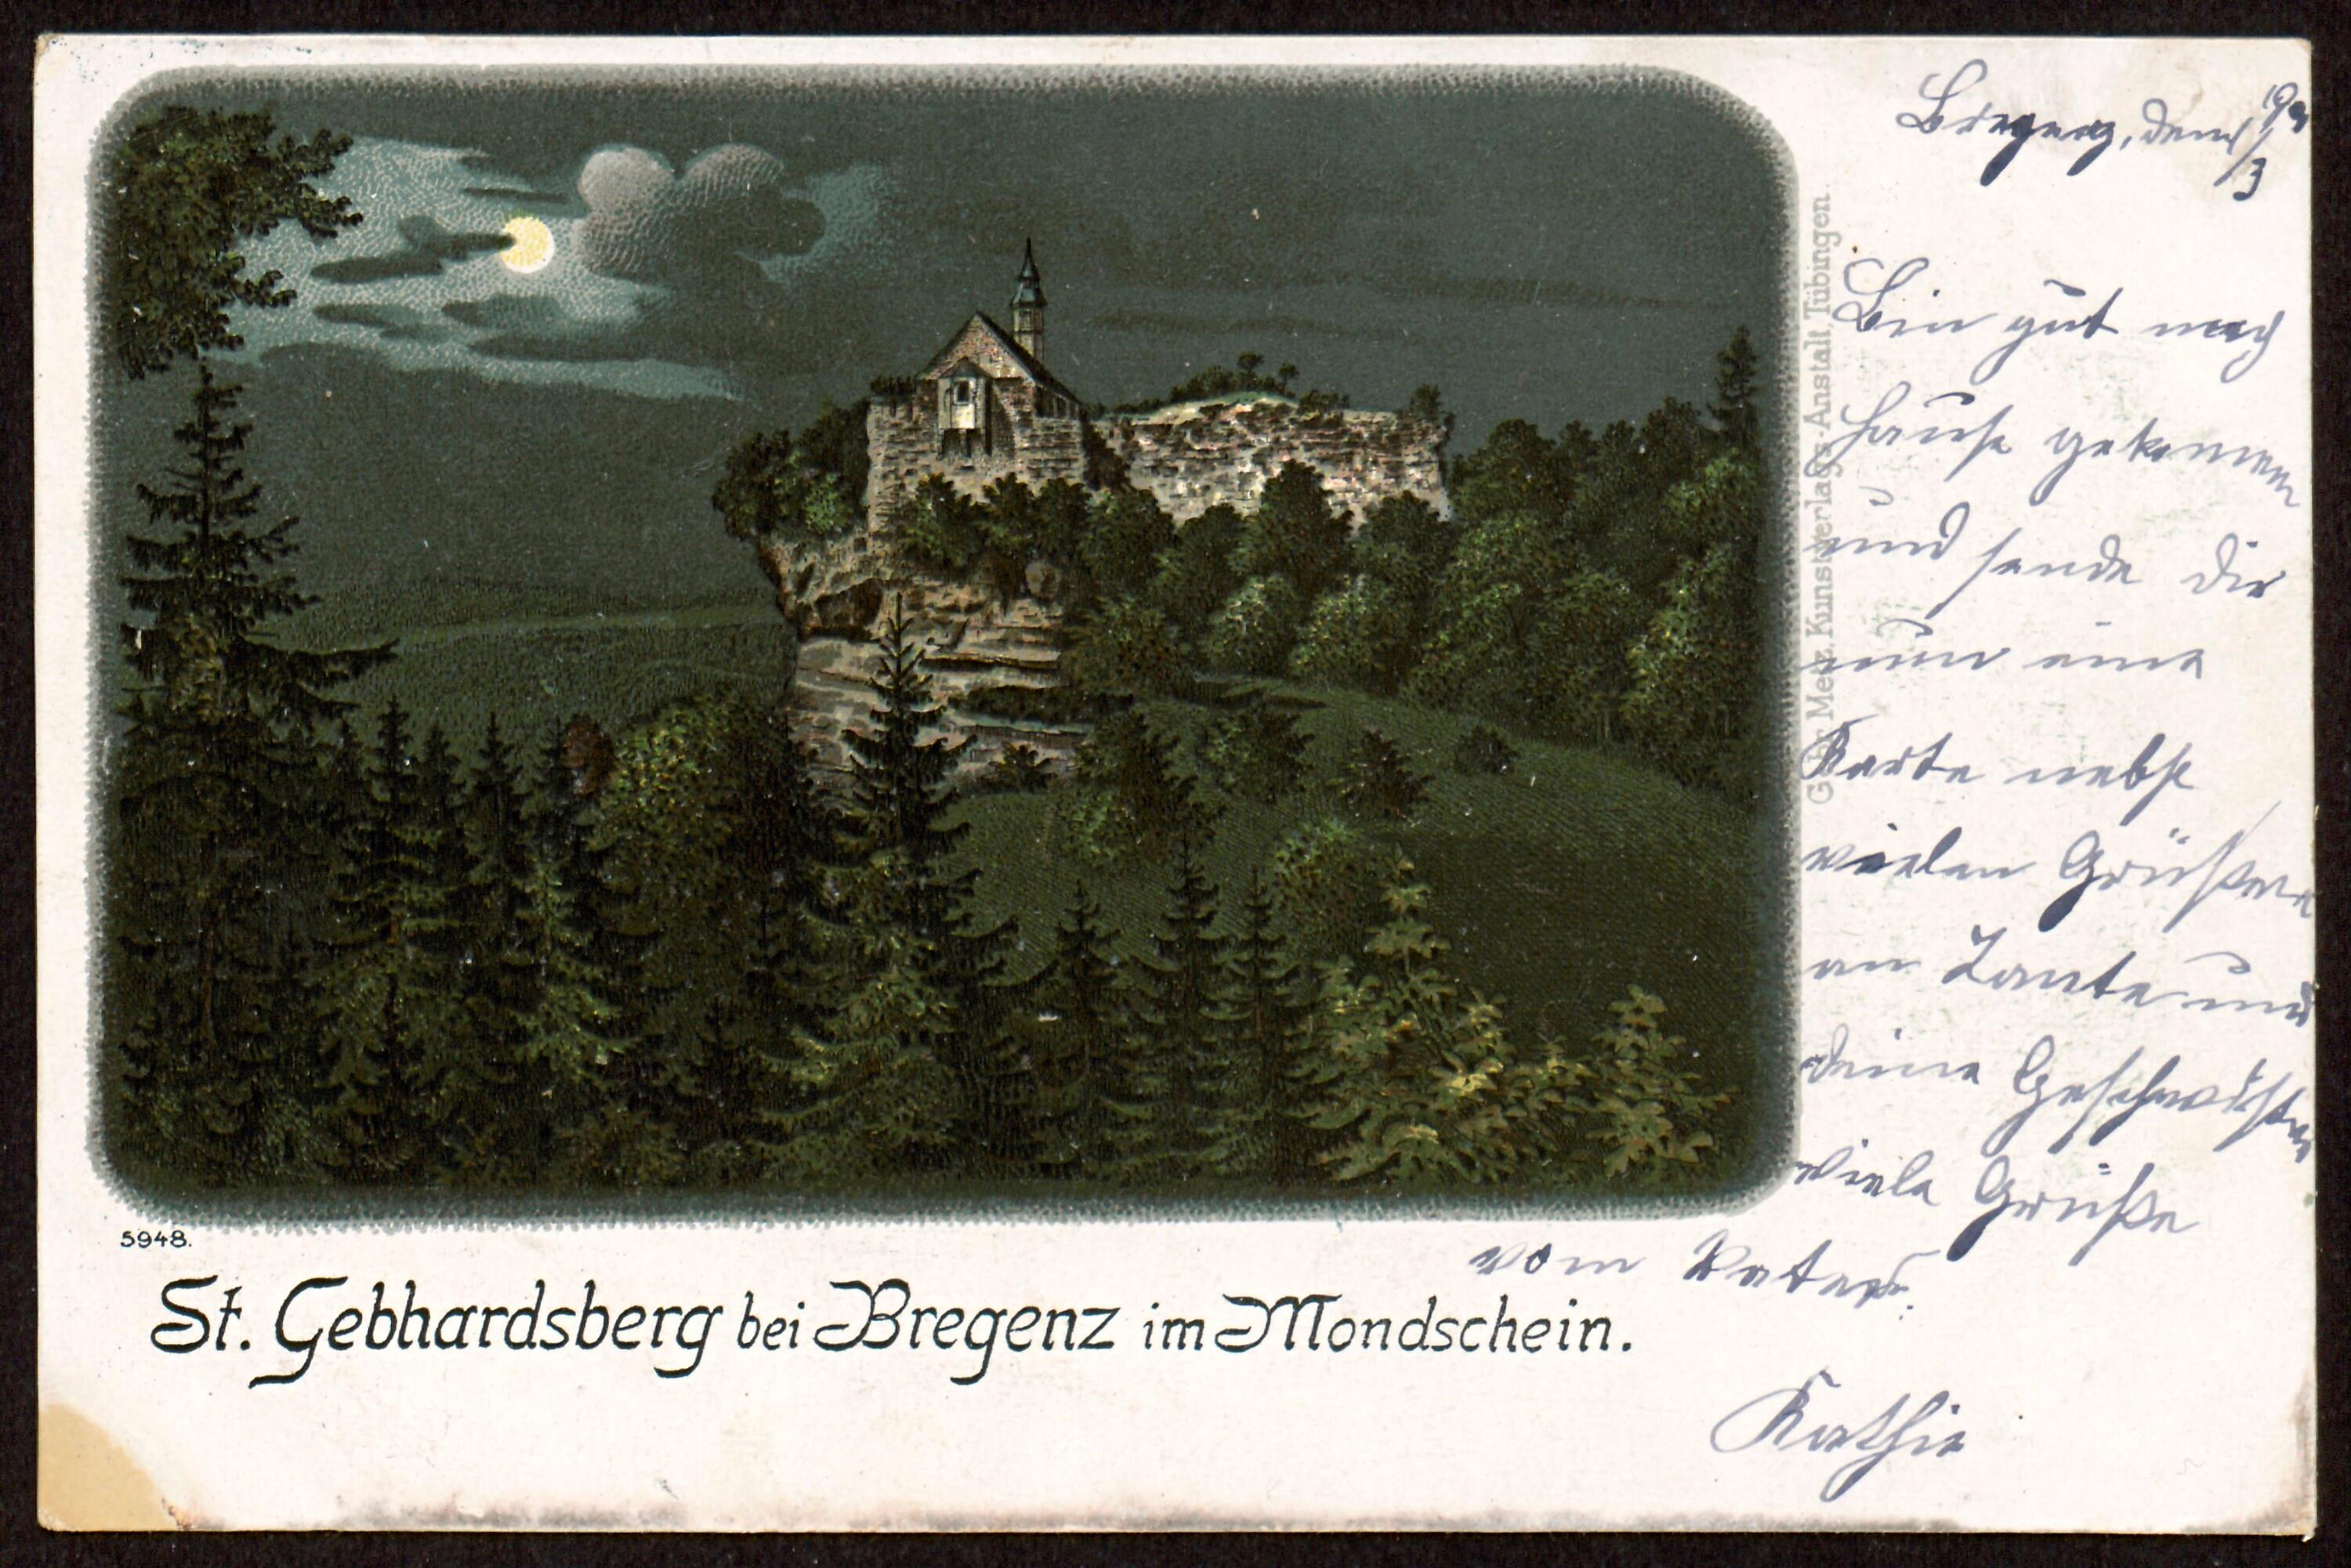 Bregenz, den
Bin gut nach
Hause gekommen
und sende Dir
nun eine
Karte nebst
vielen Grüßen
an Tante und
deine Geschwister
viele Grüße
vom Vater.
Kathie
Gebr. Metz, Kunstverlags-Anstalt, Tübingen.
5948.
St. Gebhardsberg bei Bregenz im Mondschein.